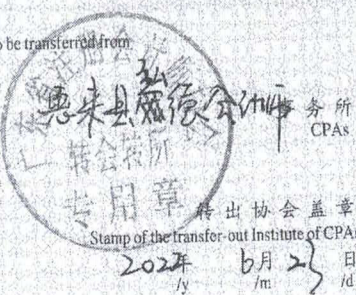 o be transferred from
弘
惠来县葳缤会计师事务所
CPAs
转会转所
专用章
转出协会盖章
Stamp of the transfer-out Institute of CPAs
2022年 6月 23日
/y /m /d